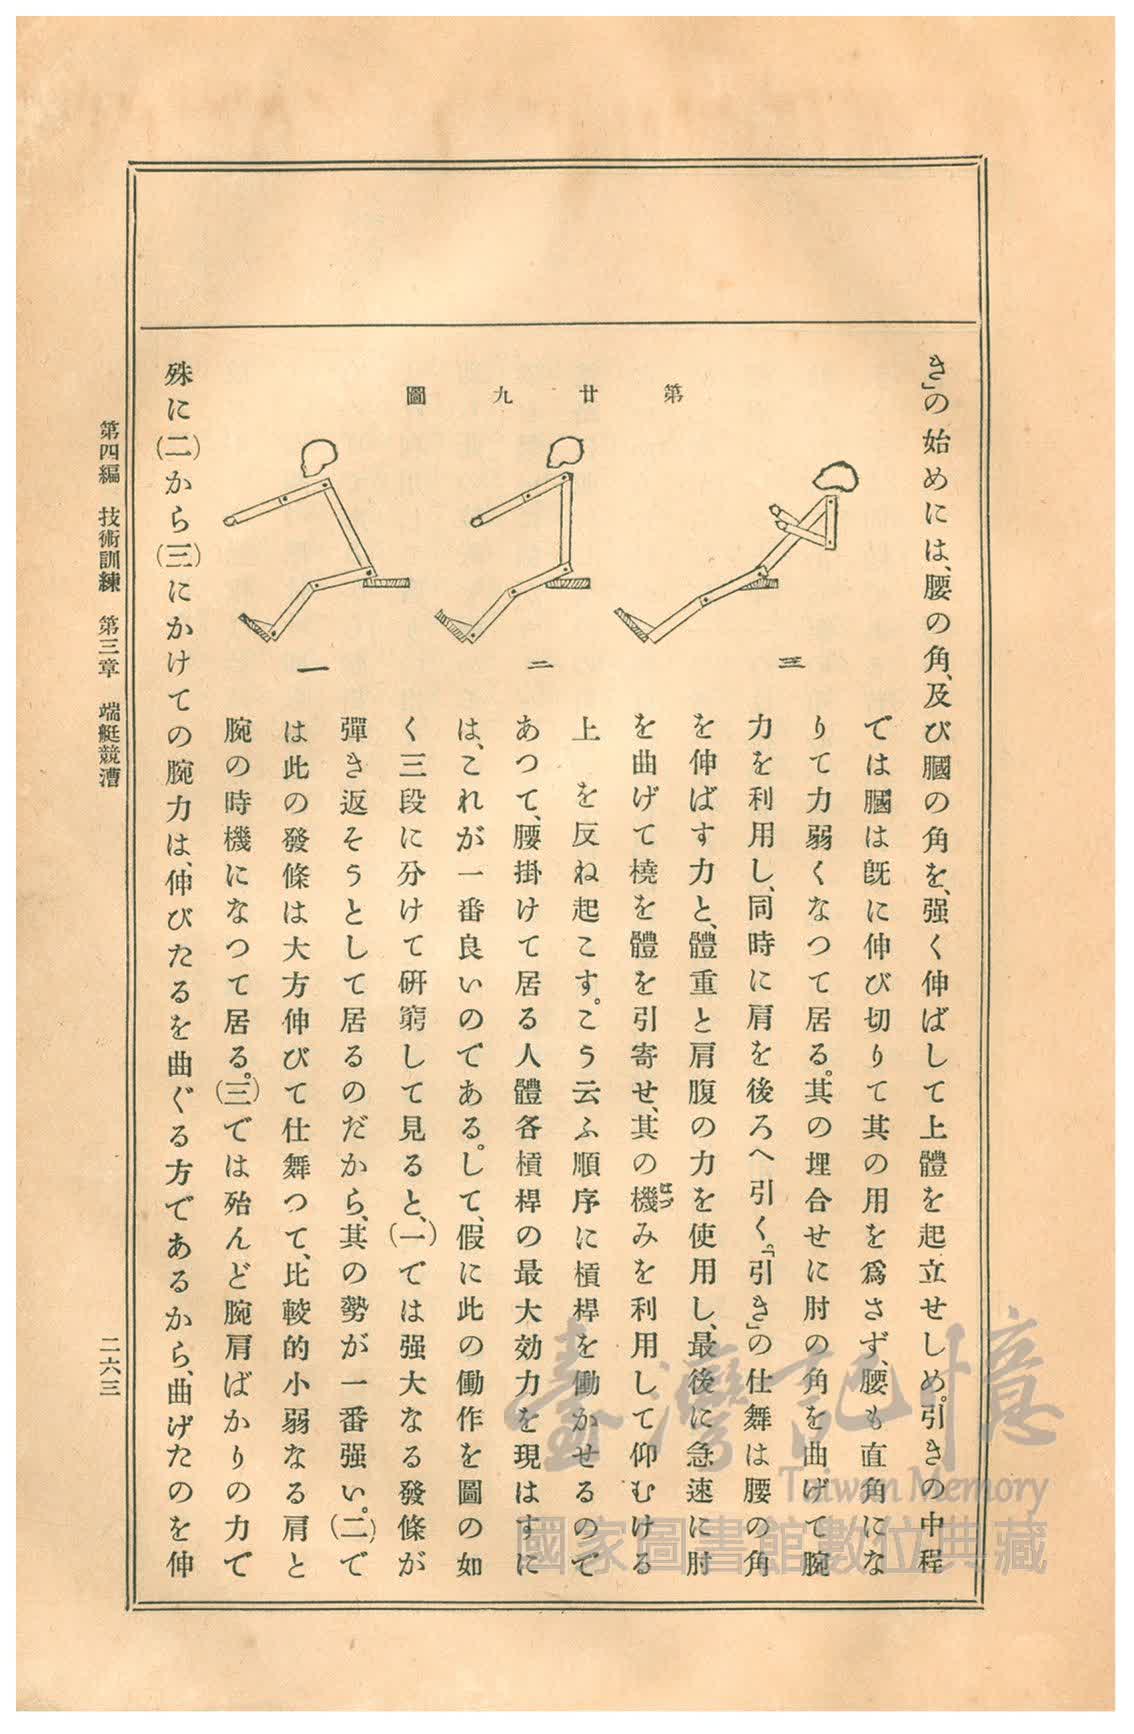 き」の始めには、腰の角、及び膕の角を、强く伸ばして上體を起立せしめ。引きの中程
第廿九圖
三
二
一
では膕は旣に伸び切りて其の用を爲さず、腰も直角にな
りて力弱くなつて居る。其の埋合せに肘の角を曲げて腕
力を利用し、同時に肩を後ろへ引く。「引き」の仕舞は腰の角
を伸ばす力と、體重と肩腹の力を使用し、最後に急速に肘
を曲げて橈を體を引寄せ、其の機みを利用して仰むける
はづ
上 を反ね起こす。こう云ふ順序に槓桿を働かせるので
あつて、腰掛けて居る人體各槓桿の最大効力を現はすに
は、これが一番良いのである。して、假に此の働作を圖の如
く三段に分けて硏窮して見ると、(一)では强大なる發條が
彈き返そうとして居るのだから、其の勢が一番强い。(二)で
は此の發條は大方伸びて仕舞つて、比較的小弱なる肩と
腕の時機になつて居る。(三)では殆んど腕肩ばかりの力で
殊に(二)から(三)にかけての腕力は、伸びたるを曲ぐる方であるから、曲げたのを伸
第四編 技術訓練 第三章 端艇競漕
二六三
臺灣記憶
Taiwan Memory
國家圖書館數位典藏